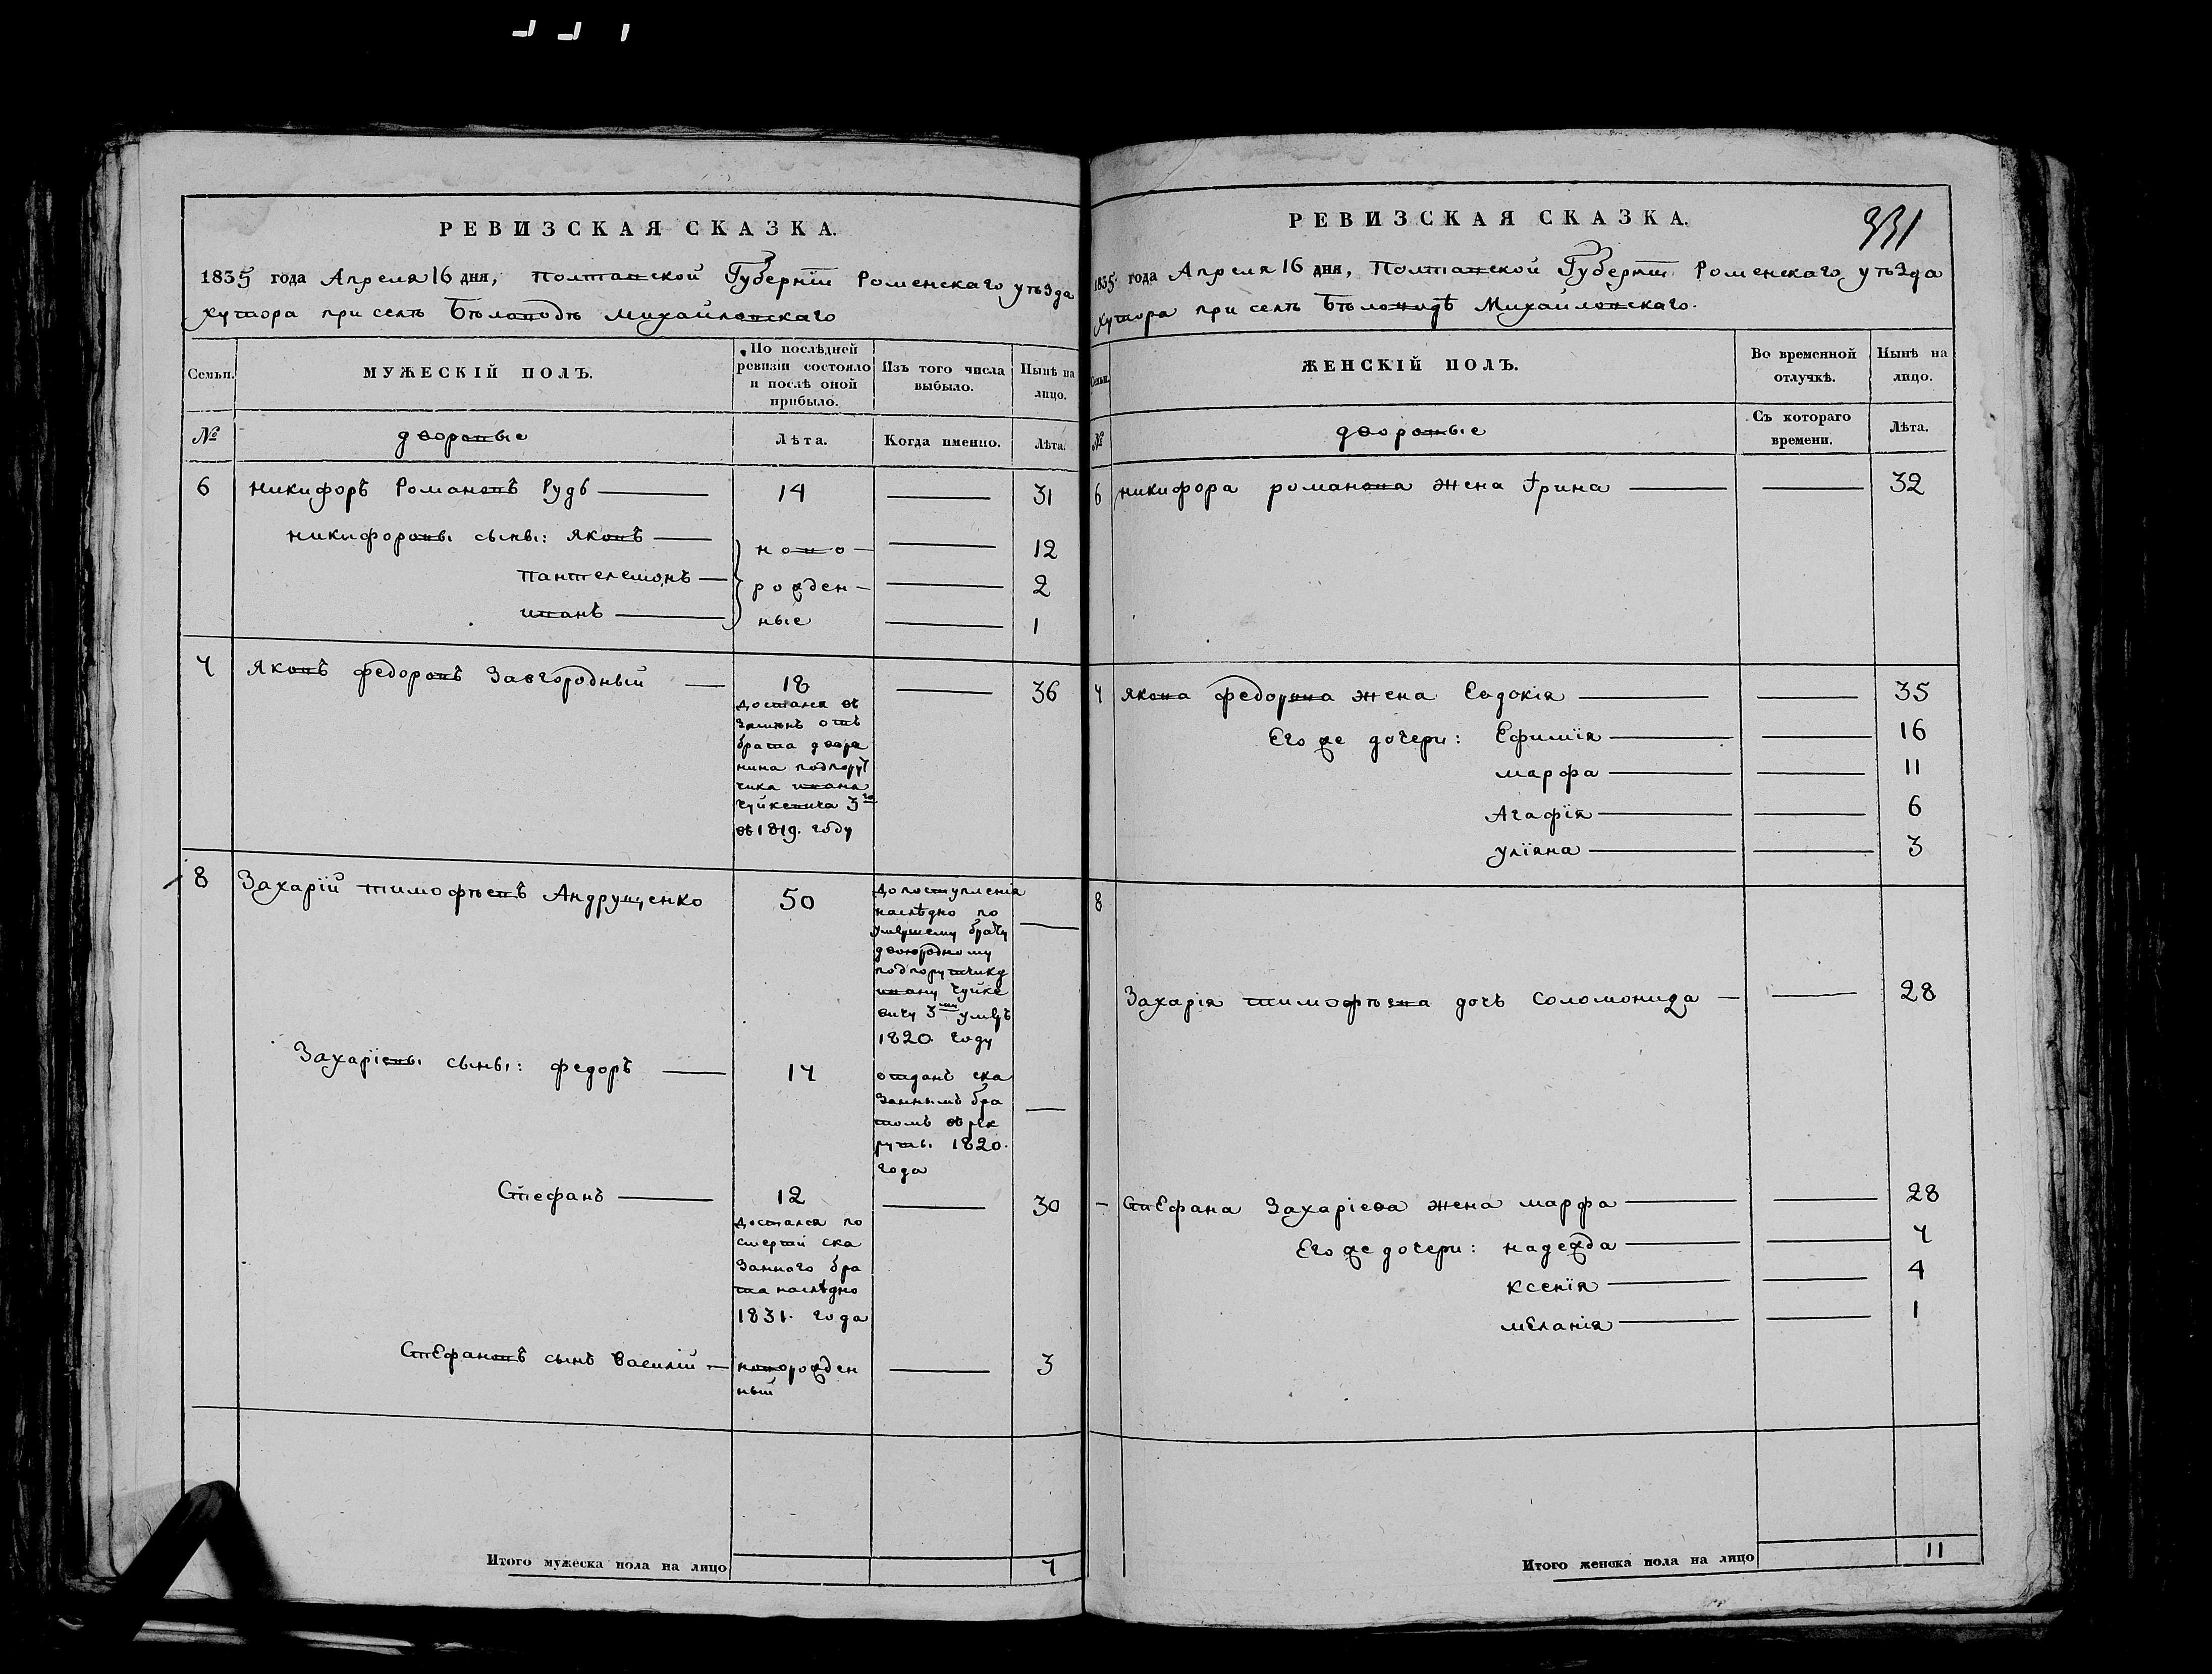 РЕВИЗСКАЯ СКАЗКА.
1835 года Апреля 16 дня, Полтавской Губерніи Роменскаго уѣзда
хутора при селѣ Бѣловодѣ Михайловскаго
Семьи.
МУЖЕСКІЙ ПОЛЪ.
По послѣдней
ревизіи состояло
и послѣ оной
прибыло.
Изъ того числа
выбыло.
Нынѣ на
лицо.
№
дворовые
Лѣта.
Когда именно.
Лѣта.
6 Никифоръ Романовъ Рудь 14 31
Никифоровы сыны: Яковъ ново 12
Пантелемонъ рожден 2
иванъ ные 1
7 Яковъ федоровъ Завгородный 18 36
Достался въ
замѣнъ отъ
брата дворя
нина подпору
чика ивана
Чуйкевича 3го
въ 1819. году
8 Захарій тимофѣевъ Андрущенко 50
До поступленія
наслѣдно по
умершему брату
двоюродному
подпоручику
ивану Чуйке
вичу 3му умеръ
1820. году
Захаріевы сыны: федоръ 17
отданъ ска
заннымъ бра
томъ въ рек
руты 1820.
года
Стефанъ 12 30
Достался по
смерти ска
занного бра
та наслѣдно
1831. года
Стефановъ сынъ Василій новорожден 3
ный
Итого мужеска пола на лицо 7
РЕВИЗСКАЯ СКАЗКА.
331
1835 года Апреля 16 дня, Полтавской Губерніи Роменскаго уѣзда
хутора при селѣ Бѣловодѣ Михайловскаго.
Семьи.
ЖЕНСКІЙ ПОЛЪ.
Во временной
отлучкѣ.
Нынѣ на
лицо.
№
дворовые
Съ котораго
времени.
Лѣта.
6 Никифора романова жена Ирина 32
7 Якова федорова жена Евдокія 35
Его же дочери: Ефимія 16
марфа 11
Агафія 6
уліяна 3
8
Захарія тимофѣева дочь Соломонида 28
Стефана Захаріева жена марфа 28
Его же дочери: надежда 7
ксенія 4
меланія 1
Итого женска пола на лицо 11